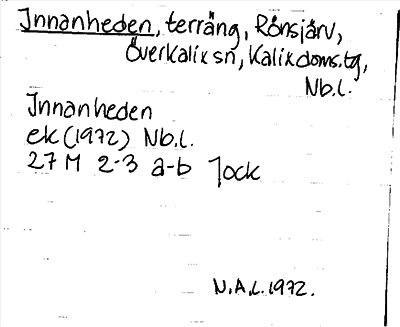 Innanheden, terräng, Rönsjärv,
Överkalix sn, Kalix doms.tg,
Nb.l.
Innanheden
ek (1972) Nb.l.
27 M 2-3 a-b Jock
N.A.L. 1972.